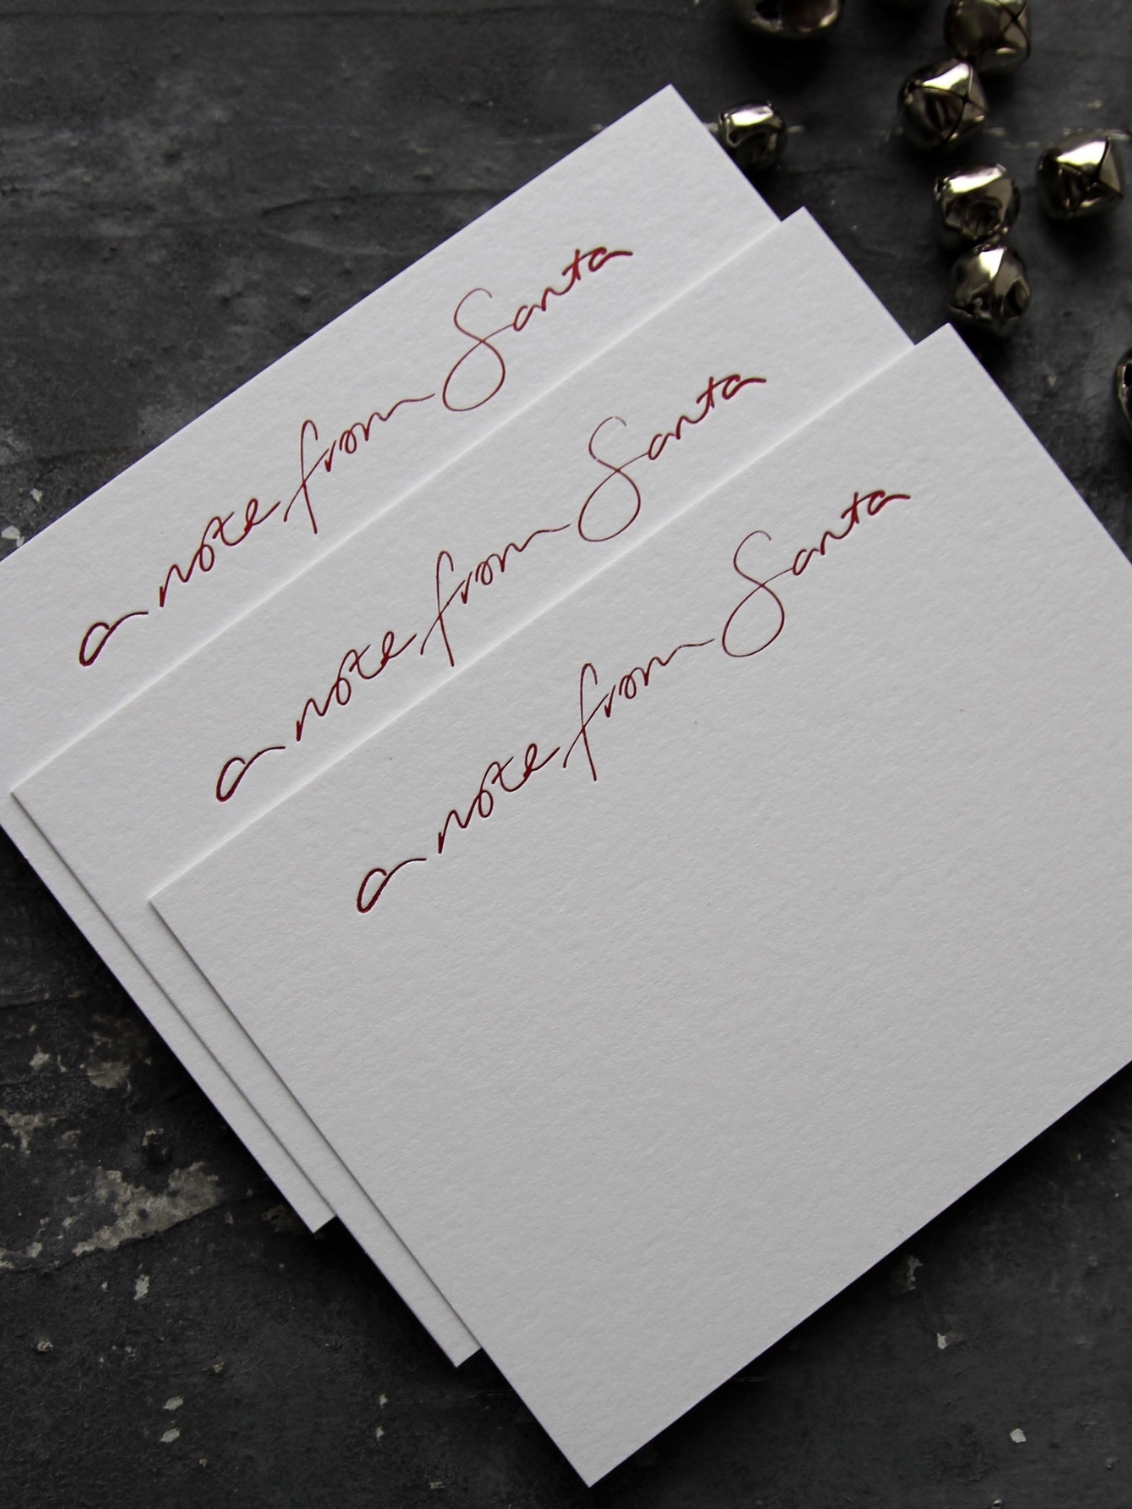 a note from Santa
a note from Santa
a note from Santa